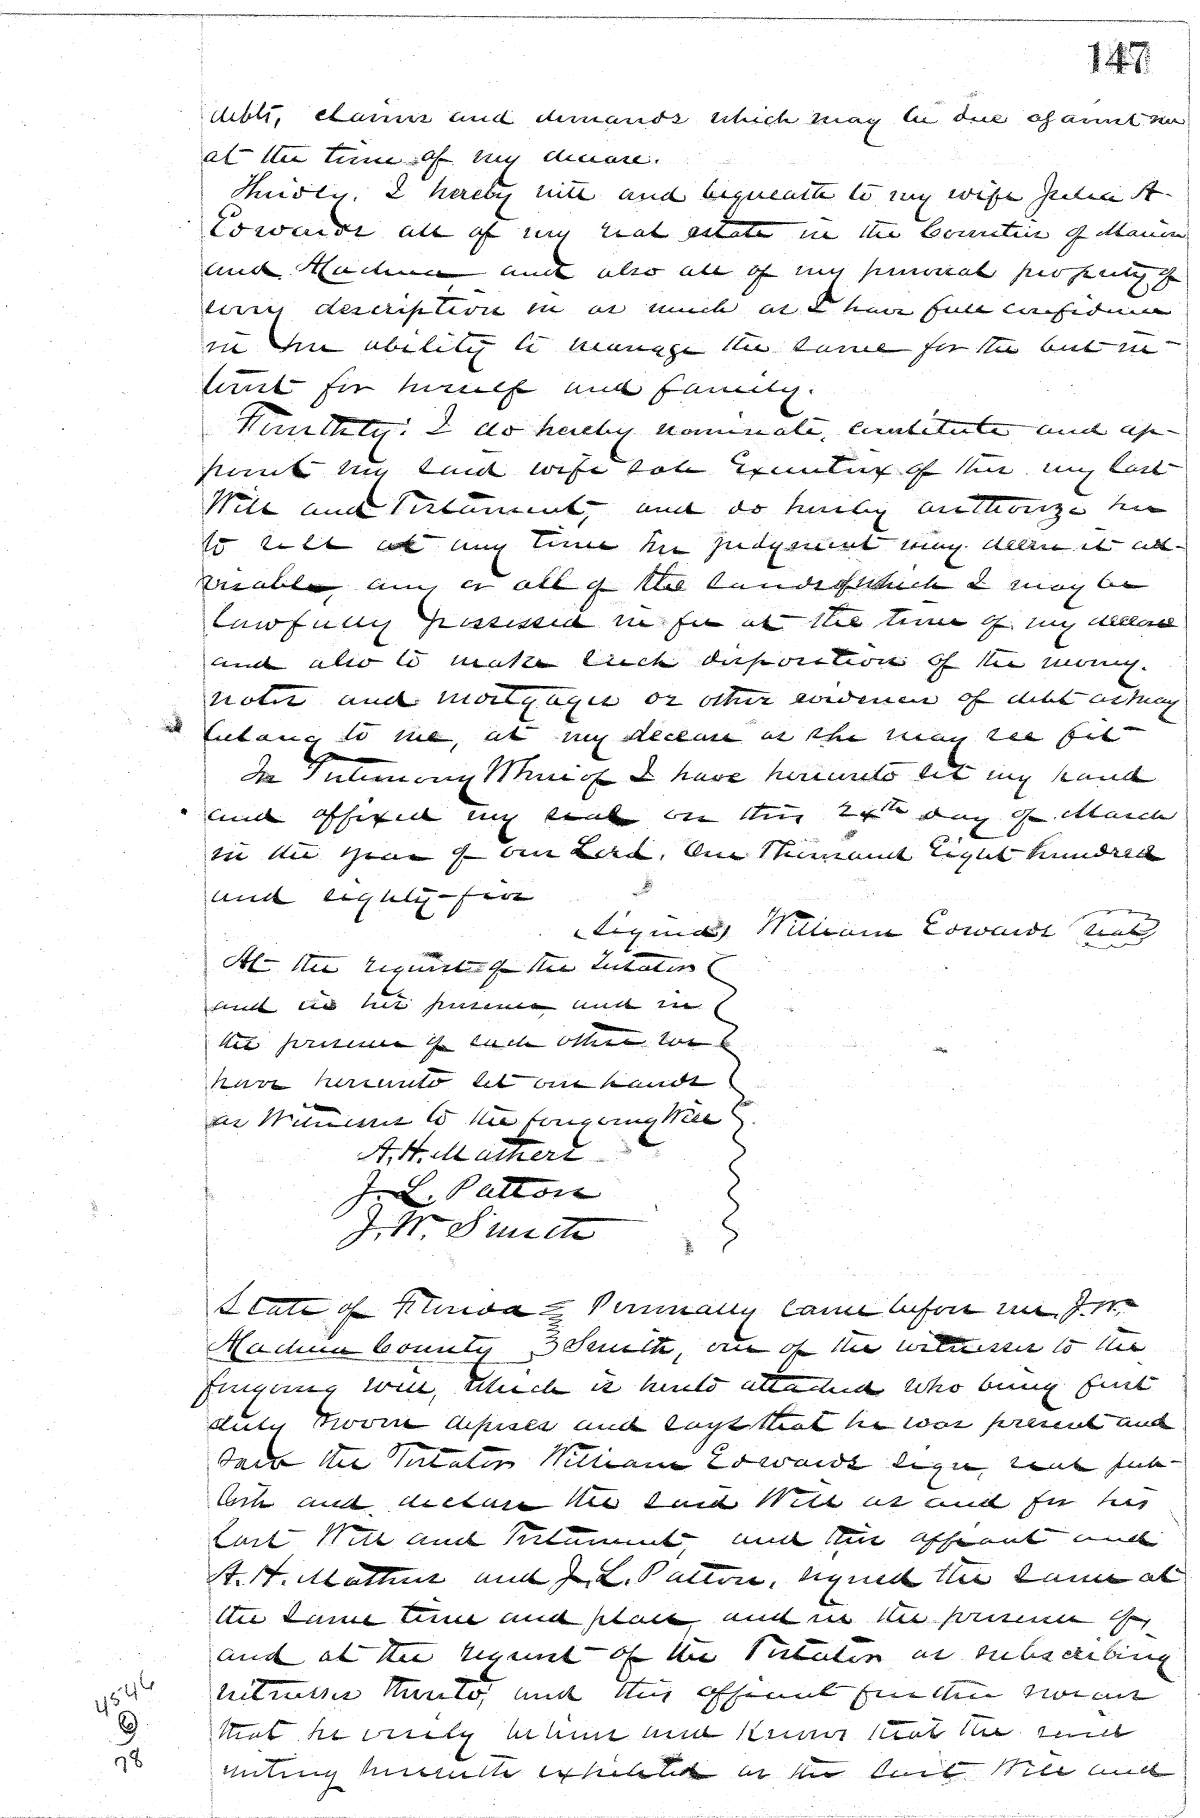 147
debts, claims and demands which may be due against me
at the time of my decease.
Thirdly. I hereby will and bequeath to my wife Julia A
Edwards all of my real estate in the Counties of Marion
and Madison and also all of my personal property of
every description in as much as I have full confidence
in her ability to manage the same for the best in-
terest for herself and family.
Fourthly: I do hereby nominate, constitute and ap-
point my said wife sole Executrix of this my last
Will and Testament, and do hereby authorize her
to sell at any time her judgment may deem it ad-
visable, any or all of the lands of which I may be
lawfully possessed in fee at the time of my decease
and also to make such disposition of the money.
notes and mortgages or other evidences of debt as may
belong to me, at my decease as she may see fit
In Testimony Whereof I have hereunto set my hand
and affixed my seal on this day of March
in the year of our Lord. One Thousand Eight hundred
and eighty-five
(Signed) William Edwards (seal)
At the request of the Testator
and in his presence and in
the presence of each other we
have hereunto set our hands
as Witnesses to the foregoing Will
A. H. Mathers
J. L. Patton
J. W. Smith
State of Florida Personally came before me J. W.
Madison County Smith, one of the witnesses to the
foregoing will, which is hereto attached who being first
duly sworn deposes and says that he was present and
saw the Testator William Edwards sign, seal pub-
lish and declare the said Will as and for his
last Will and Testament, and this affiant and
A. H. Mathers and J. L. Patton, signed the same at
the same time and place and in the presence of,
and at the request of the Testator as subscribing
witnesses thereto, and this affiant further swears
that he verily believes and knows that the said
writing herewith exhibited as the last Will and
4546
6
78